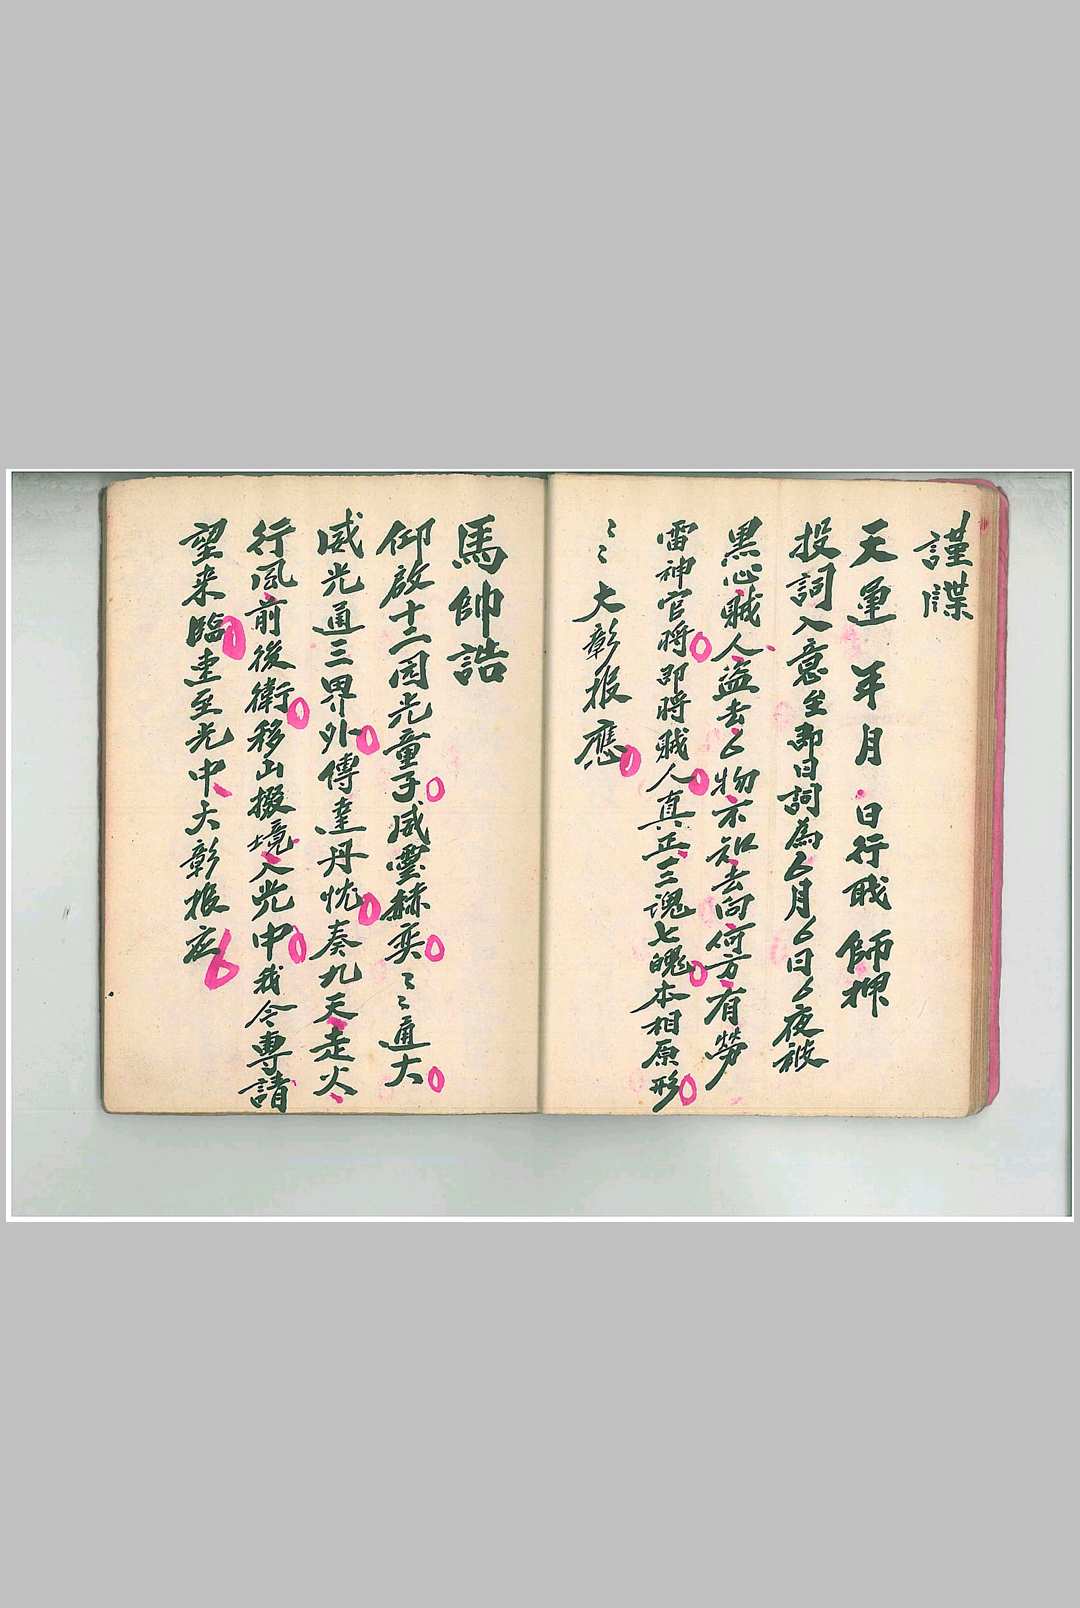 謹牒
天運　年月　日行戝師押
投詞入意至即日詞為厶月厶日厶夜被
黑心賊人盜去厶物不知去向何方有勞
雷神官將即將賊人真正三魂七魄本相原形
〻〻大彰報應
馬帥誥
仰啟十二囩光童子威灵赫奕〻〻通大
威光通三界外傳達丹忱奏九天走火
行風前後衛移山掇境入光中我今專請
望来臨速至光中大彰报应